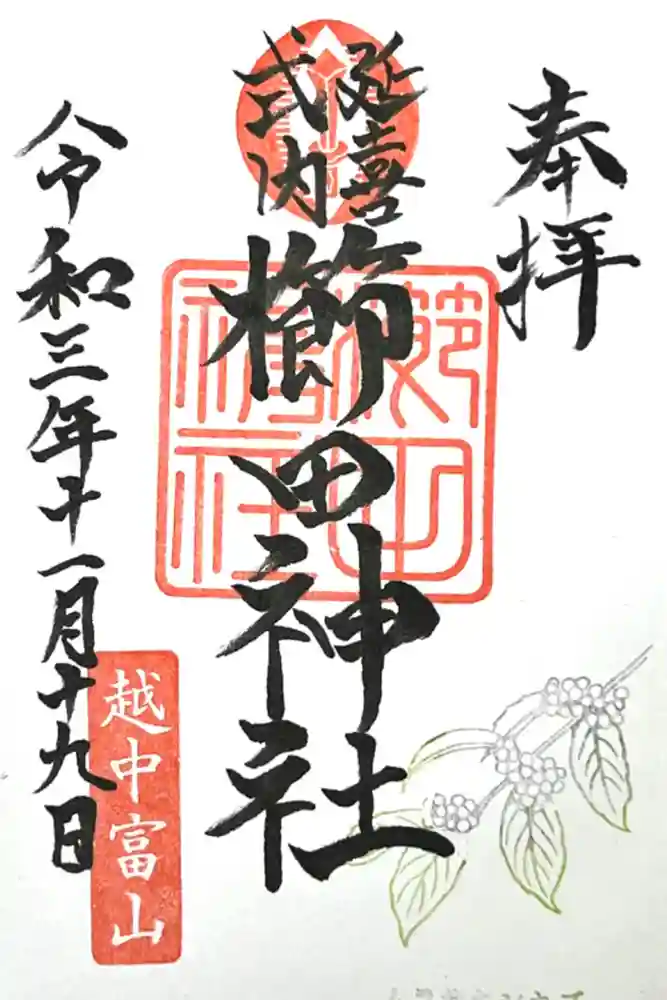 奉拝
延喜
式内
櫛田神社
櫛田
神社
令和三年十一月十九日
越中富山